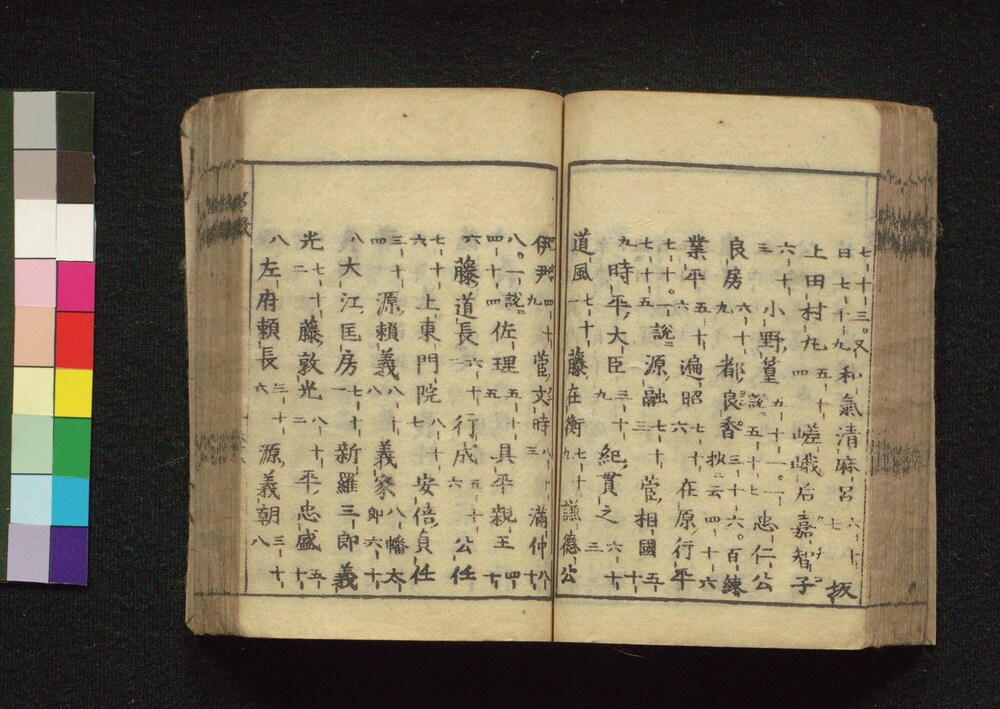 七十三。又曰七十九和氣清麻呂六十七坂
上田村丸五十四嵯峨后嘉智子
六十三小野篁五十一。一說五十七忠仁公
良房六十九都良香三十六。百練抄云四十六
業平五十六遍昭七十六在原行平
七十。一說七十五源融七十三菅相國五十
九時平大臣三十九紀貫之六十三
道風七十一藤在衡七十九謙德公
伊尹四十九菅文時八十三滿仲八十
八。一說四十四佐理五十五具平親王四十
六藤道長六十二行成五十六公任
七十六上東門院八十七安倍貞任
三十四源賴義八十八義家八幡太郎六十
八大江匡房七十一新羅三郎義
光七十二藤敦光八十二平忠盛五十
八左府賴長三十六源義朝三十八